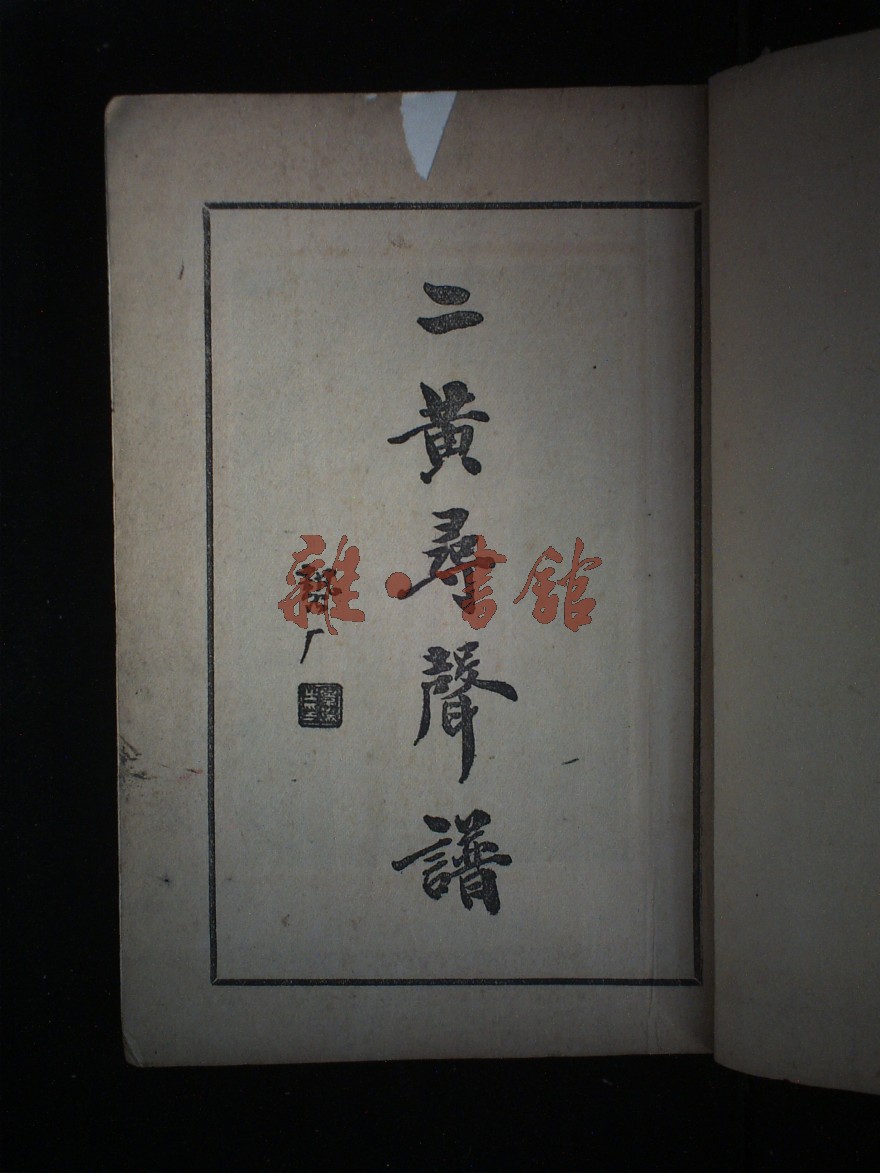 二黃尋聲譜
雜·書館